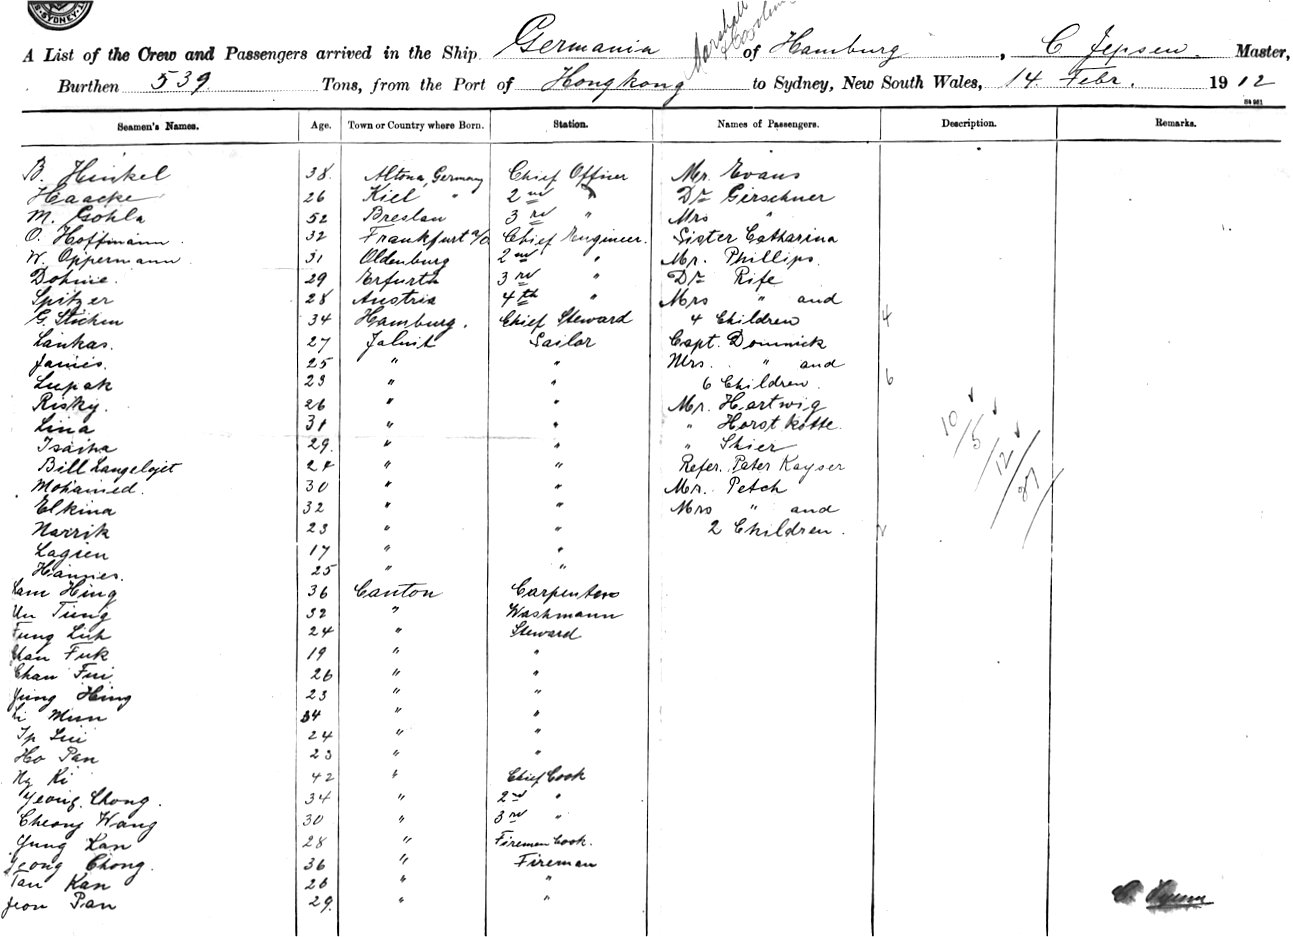 SYDNEY
Marshall
& Caroline
A List of the Crew and Passengers arrived in the Ship Germania of Hamburg, C Jepsen Master,
Burthen 539 Tons, from the Port of Hongkong to Sydney, New South Wales, 14 Febr. 1912
Seamen's Names. Age. Town or Country where Born. Station. Names of Passengers. Description. Remarks.
B. Hinkel 38 Altona, Germany Chief Officer Mr. Evans
Haacke 26 Kiel " 2nd " Dr Girschner
M. Gohla 52 Breslau 3rd " Mrs "
O. Hoffmann. 32 Frankfurt a/O Chief Engineer. Sister Catharina
W. Oppermann 31 Oldenburg 2nd " Mr. Phillips.
Dohme. 29 Erfurth 3rd " Dr Rife
Spitzer 28 Austria 4th " Mrs " and
G. 34 Hamburg. Chief Steward 4 Children 4
Lankas. 27 Jaluit Sailor Capt. Dominick
James. 25 " " Mrs. " and
Lupak 23 " " 6 Children. 6
Risky. 26 " " Mr. Hartwig
Lina 31 " " " Horstkötte.
29. " " " Skier
Bill Langelojet 24 " " Refer. Pater Kayser
Mohamed. 30 " " Mr. Petch
Elkina 32 " " Mrs " and
Narrik 23 " " 2 Children. 2
Lagien 17 " "
Hannes. 25 " "
10/5/12/27
Lam Hing 36 Canton Carpenters
Un Tung 32 " Washmann
Fung Luk 24 " Steward
Chan Fuk 19 " "
Chan Fui 26 " "
Yung Hing 23 " "
Li Mun 34 " "
Ip Lui 24 " "
Ho Pan 23 " "
Ng Ki 42 " Chief Cook
Yeong Chong. 34 " 2nd "
Cheong Wang 30 " 3rd "
Yung Kan 28 " Firemen Cook.
Yeong Chong. 36 " Fireman
Tan Kan 26 " "
Jeon Pan 29. " "